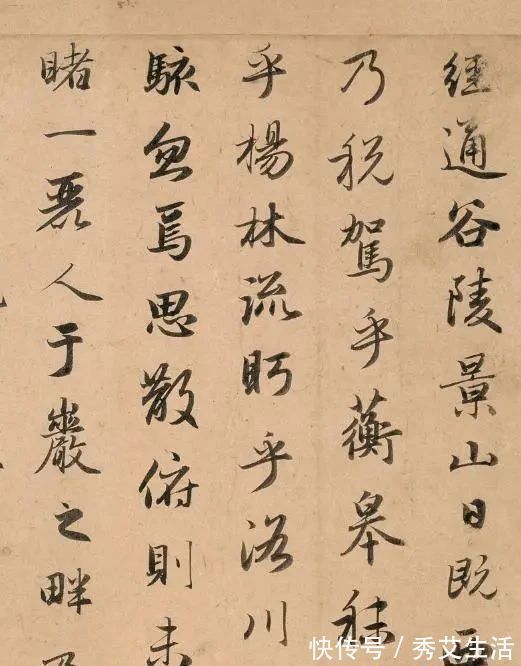 經通谷陵景山日既西
乃税駕乎蘅皋秣
乎楊林流眄乎洛川
駭忽焉思散俯則未
睹一麗人于巖之畔乃
快传号 / 秀艾生活